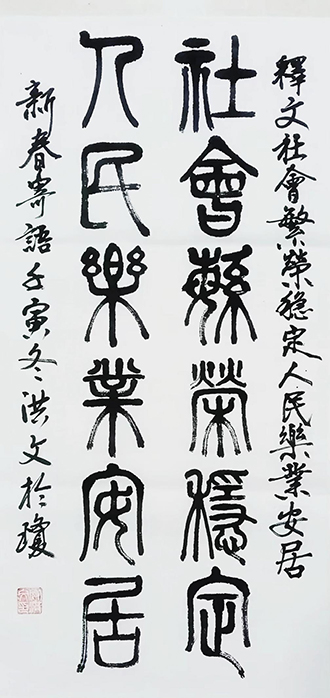 釋文社會繁榮穩定人民樂業安居
社會繁榮穩定
人民樂業安居
新春寄語壬寅冬洪文於瓊